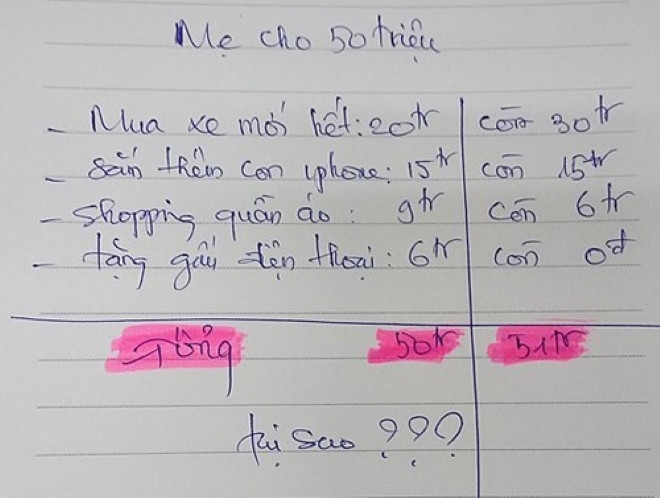 Mẹ cho 50 triệu
- Mua xe mới hết: 20tr còn 30tr
- Sắm thêm con iphone: 15tr còn 15tr
- Shopping quần áo: 9tr còn 6tr
- tặng gấu điện thoại: 6tr còn 0đ
Tổng 50tr 51tr
tại sao ???